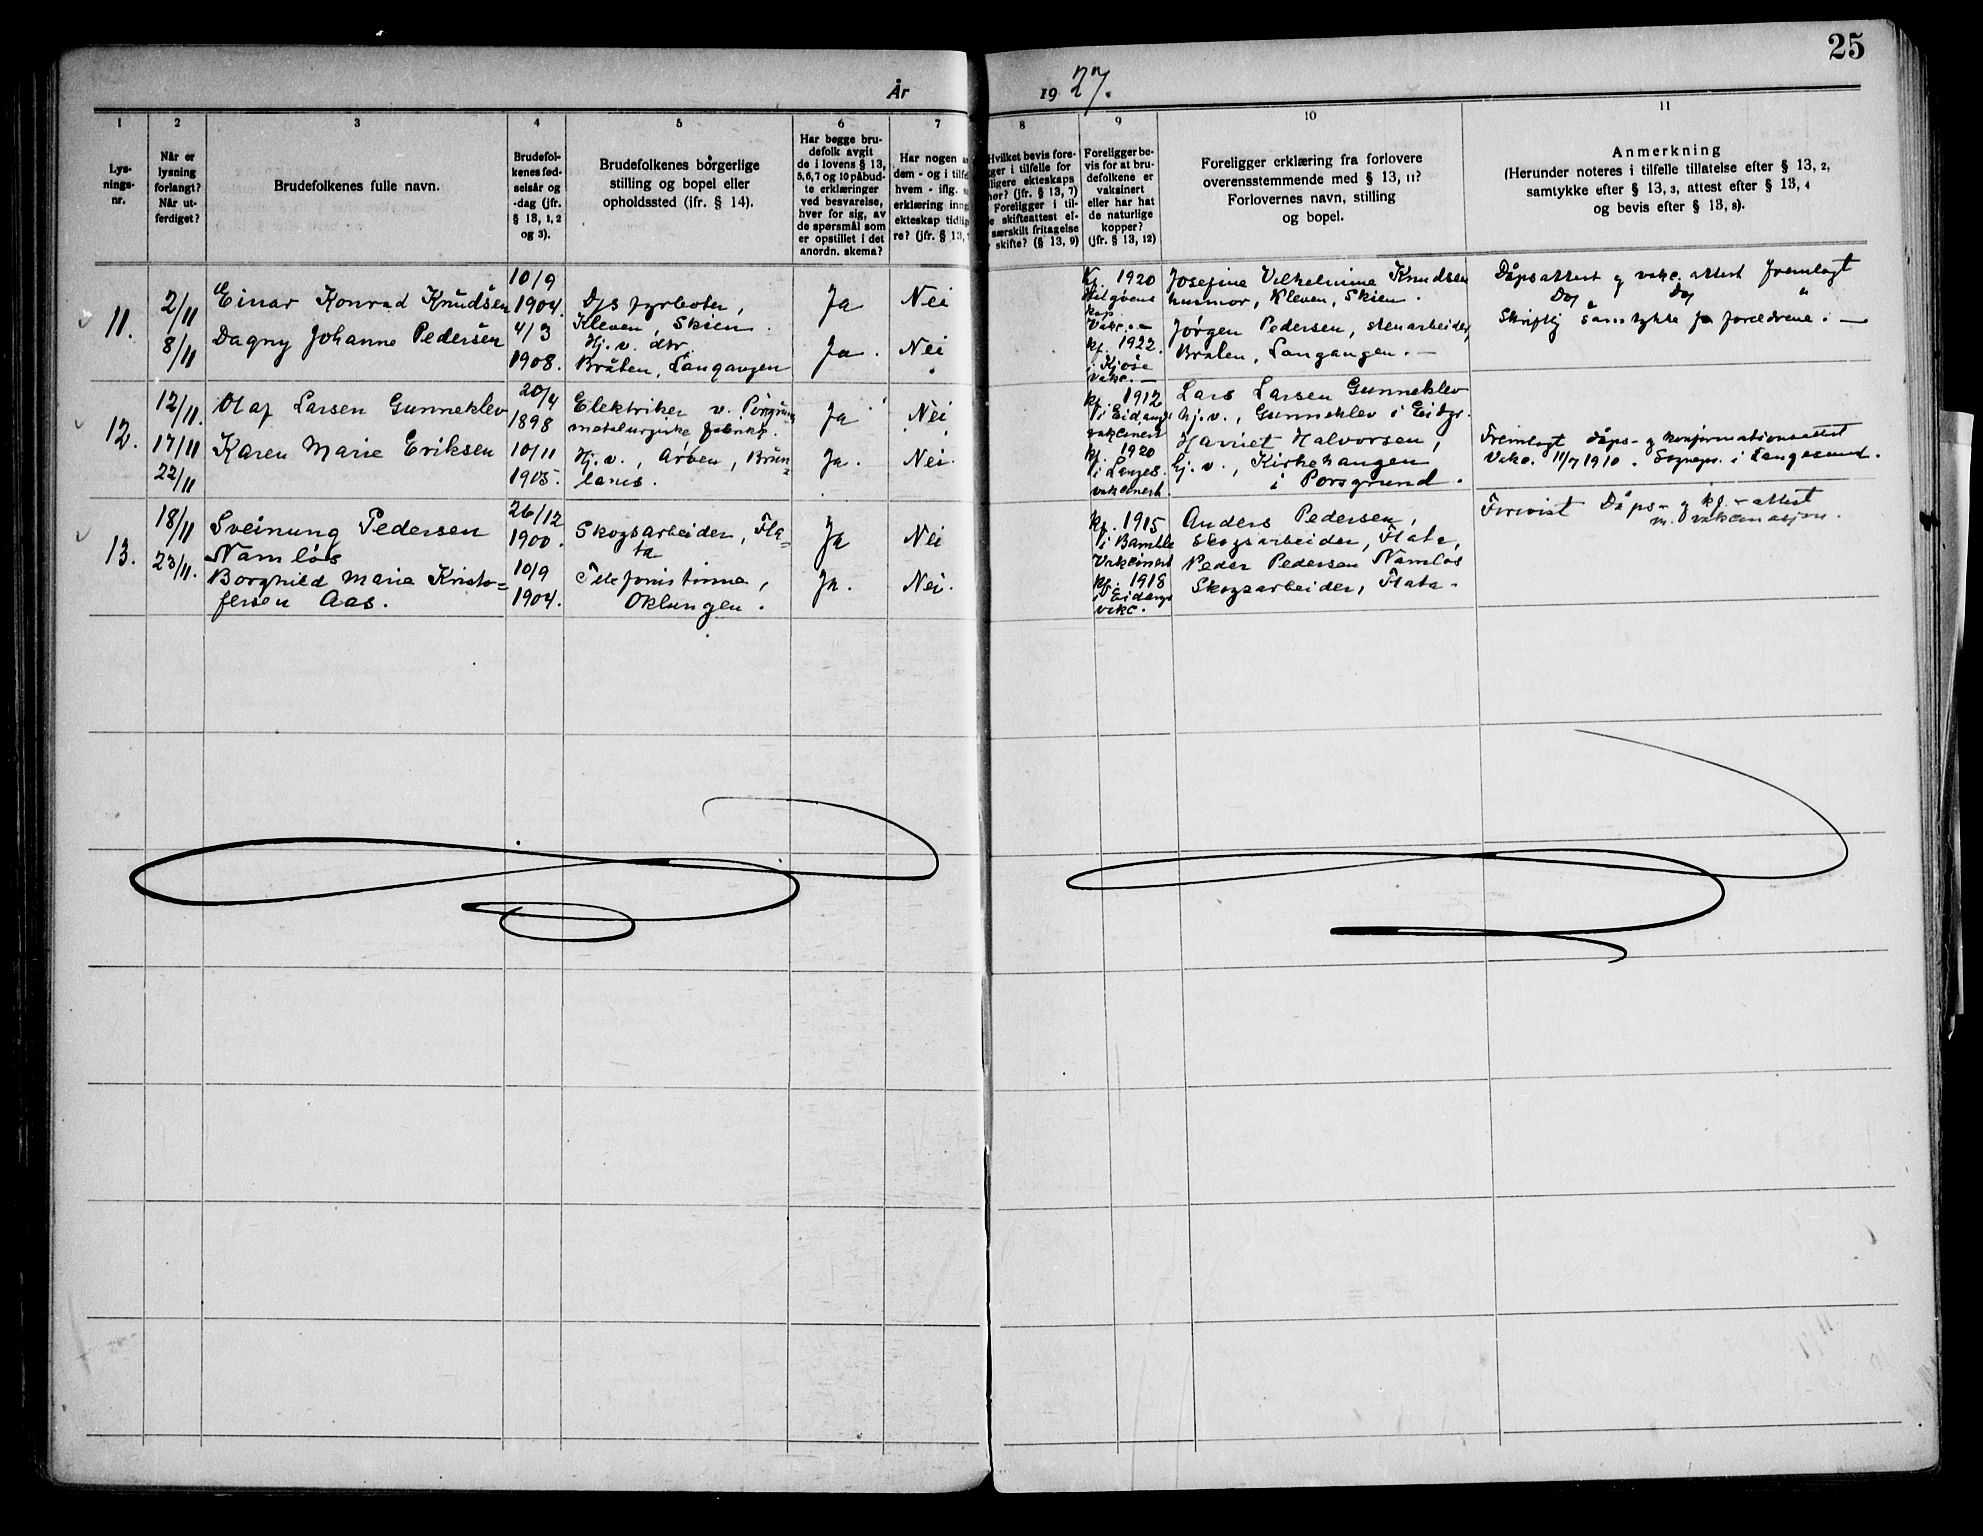 25
År
19 27.
1
2
3
4
5
6
7
8
9
10
11
Lys-
nings-
nr.
Når er
lysning
forlangt?
Når ut-
ferdiget?
Brudefolkenes fulle navn.
Brudefol-
kenes fød-
selsår og
-dag (jfr.
§ 13, 1, 2
og 3).
Brudefolkenes borgerlige
stilling og bopel eller
opholdssted (ifr. § 14).
Har begge bru-
defolk avgit
de i lovens § 13,
5, 6, 7 og 10 påbud-
te erklæringer
ved besvarelse,
hver for sig, av
de spørsmål som
er opstillet i det
anordn. skema?
Har nogen a
dem - og i tilfe
hvem - iflg. s
erklæring inng
ekteskap tidlig
re? (jfr. § 13,
Hvilket bevis fore-
gger i tilfelle for
ligere ekteskaps
hør? (jfr. § 13, 7)
Foreligger i til-
e skifteattest el-
særskilt fritagelse
skifte? (§ 13, 9)
Foreligger be-
vis for at bru-
defolkene er
vaksinert
eller har hat
de naturlige
kopper?
(jfr. § 13, 12)
Foreligger erklæring fra forlovere
overensstemmende med § 13, 11?
Forlovernes navn, stilling
og bopel.
Anmerkning
(Herunder noteres i tilfelle tillatelse efter § 13, 2,
samtykke efter § 13, 3, attest efter § 13, 4
og bevis efter § 13, 8).
11.
2/11
8/11
Einar Konrad Knudsen
Dagny Johanne Pedersen
10/9
1904.
4/3
1908.
fyrbøter,
Kleven, Skien.
Hj. v. dtr.
Bråten, Langangen
Ja
Ja.
Nei
Nei
Kf. 1920
Vakc. -
kf. 1922.
i Kjose
vakc. -
Josefine Vilhelmine Knudsen
husmor, Kleven, Skien.
Jørgen Pedersen, stenarbeider,
Bråten, Langangen. -
Dåpsattest og vakc. attest fremlagt
Do Do "
Skriftlig samtykke fra foreldrene. -
12.
12/11.
17/11
22/11
Olaf Larsen Gunneklev
Karen Marie Eriksen
20/4
1898
10/11
1905.
Elektriker v. Porsgrunn
metalurgiske fabrikk.
Hj. v., Arøen, Brun-
lanes.
Ja
Ja.
Nei
Nei.
kf. 1912
i Eidanger
vakcinert
kf. 1920
i Langes.
vakcinert
Lars Larsen Gunneklev
hj. v., Gunneklev i Eidgr.
Harriet Halvorsen,
hj. v., Kirkehaugen
i Porsgrund.
Fremlagt dåps- og konfirmationsattest
Vakc. 11/7 1910. Sognepr. i Langesund.
13.
18/11
23/11.
Sveinung Pedersen
Namløs
Borghild Marie Kristo-
fersen Aas.
26/12
1900.
10/9
1904.
Skogsarbeider, Fla-
ta
Telefonistinne,
Oklungen.
Ja
Ja.
Nei
Nei.
kf. 1915
i Bamble
Vakcinert
kf. 1918
i Eidange
vakc.
Anders Pedersen,
skogsarbeider, Flata,
Peder Pedersen Namløs
Skogsarbeider, Flata.
Forevist Dåps- og kf.- attest
m. vakcinasjon.